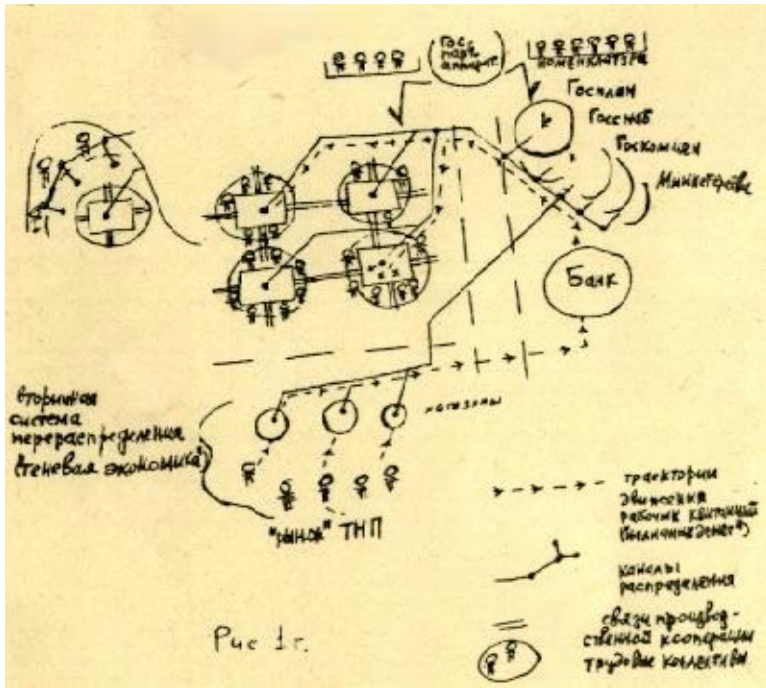 Гос.
парт.
аппарат.
номенклатура
Госплан
Госснаб
Госкомцен
Министерства
Банк
вторичная
система
перераспределения
(теневая экономика)
магазины
"рынок" ТНП
траектории
движения
рабочих квитанций
каналы
распределения
связи производ-
ственной кооперации
трудовые коллективы
Рис 1г.